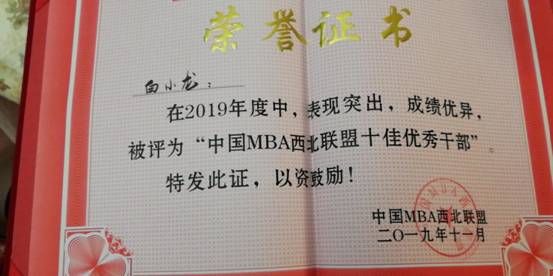 荣誉证书
白小龙：
在2019年度中，表现突出，成绩优异，
被评为“中国MBA西北联盟十佳优秀干部”。
特发此证，以资鼓励！
中国MBA西北联盟
二〇一九年十一月